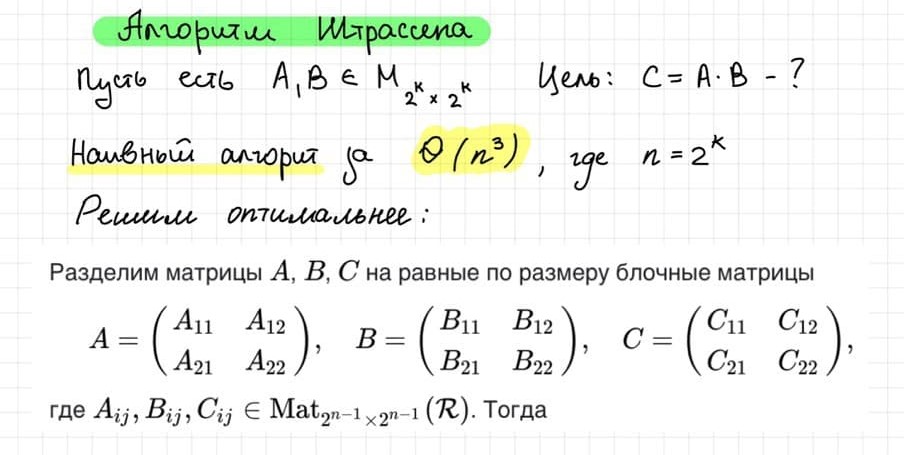 Алгоритм Штрассена
Пусть есть A, B ∈ M_{2^k × 2^k} Цель: C = A · B - ?
Наивный алгорит за Θ(n³), где n = 2^k
Решим оптимальнее:
Разделим матрицы A, B, C на равные по размеру блочные матрицы
A = (A₁₁ A₁₂ ; A₂₁ A₂₂), B = (B₁₁ B₁₂ ; B₂₁ B₂₂), C = (C₁₁ C₁₂ ; C₂₁ C₂₂),
где A_{ij}, B_{ij}, C_{ij} ∈ Mat_{2^{n−1}×2^{n−1}}(ℛ). Тогда